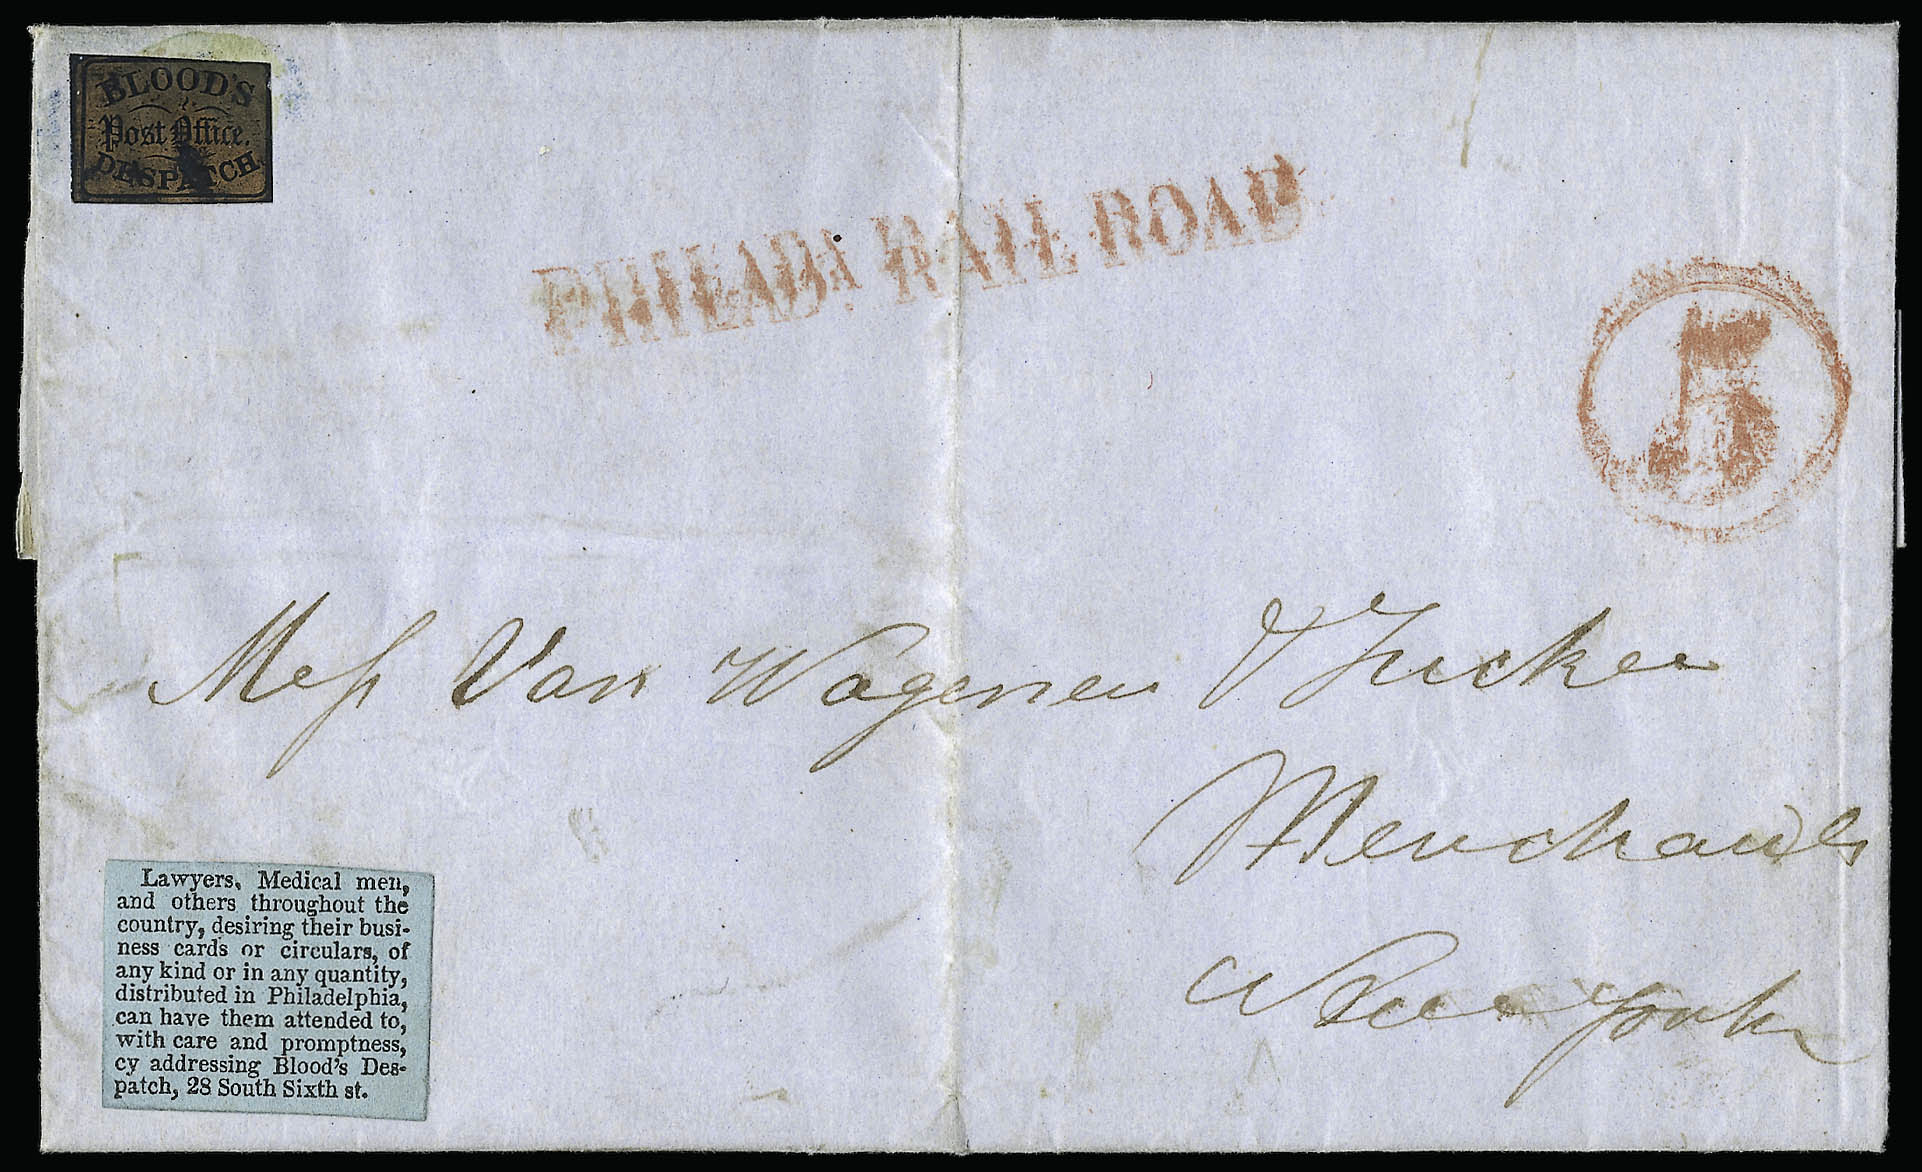 BLOOD'S
Post Office.
DESPATCH
PHILADA RAIL ROAD
5
Mess Van Wagenen & Tucker
Merchants
New York
Lawyers, Medical men,
and others throughout the
country, desiring their busi-
ness cards or circulars, of
any kind or in any quantity,
distributed in Philadelphia,
can have them attended to,
with care and promptness,
cy addressing Blood's Des-
patch, 28 South Sixth st.